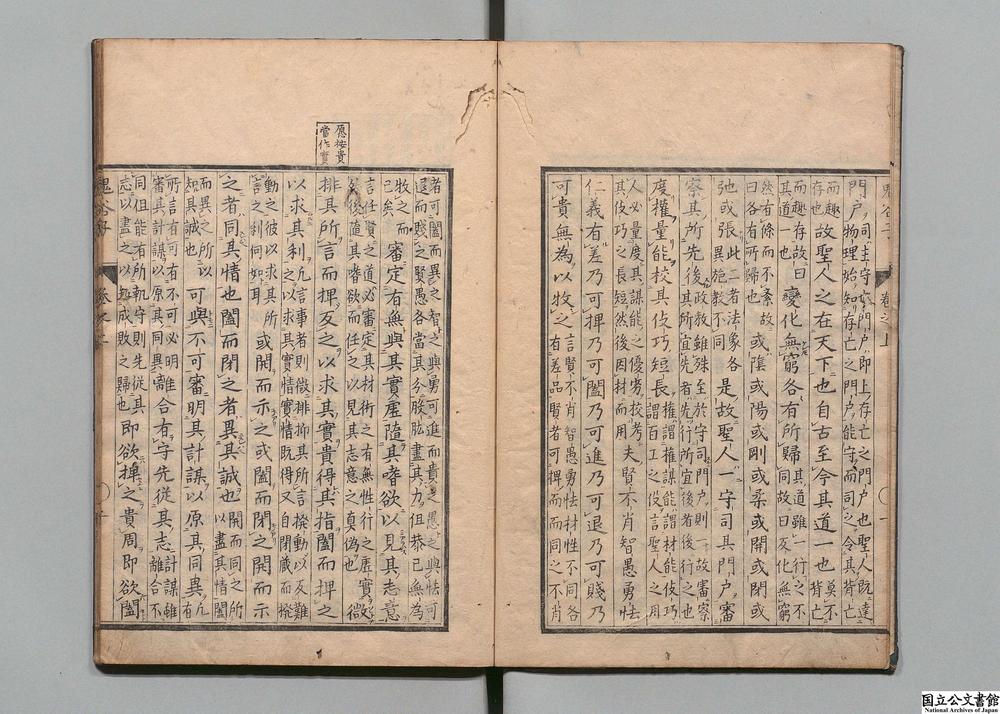 門户司主守也門户即上存亡之門户也聖人既達
物理始知存亡之門户能守而司之令其背亡
而趣存也故聖人之在天下也自古至今其道一也莫不背亡
而趣存故曰其道一也變化無窮各有所歸其道雖一行之不同故曰反化無窮
然有條而不紊故曰各有所歸或陰或陽或剛或柔或開或閉或
弛或張此二者法家各異施教不同是故聖人一守司其門户審
察其所先後政教雖殊至於守司門户則一故審察其所宜先者先行所宜後者後行之也
度權量能校其伎巧短長權謂權謀能謂材能伎巧謂百工之伎言聖人之用
人必量度其謀能之優劣校考其伎巧之長短然後因材而用夫賢不肖智愚勇怯
仁義有差乃可捭乃可闔乃可進乃可退乃可賤乃
可貴無為以牧之言賢不肖智愚勇怯材性不同各有差品賢者可捭而同之不肖
愿按貴
當作實
者可闔而異之智之與勇可進而貴之愚之與怯可
退而賤之賢愚各當其分股肱盡其力但恭己無為
牧之而已矣審定有無與其實虛隨其嗜欲以見其志意
言任賢之道必審定其材術之有無性行之虛實然後隨其嗜欲而任之以見其志意之真偽也微
排其所言而捭反之以求其實貴得其指闔而捭之
以求其利凡言事者則微排抑其所言撥動以反難之以求其實情實情既得又自閉藏而撥
動之彼以求其所言之利何如耳或開而示之或闔而閉之開而示
之者同其情也闔而閉之者異其誠也開而同之所以盡其情闔
而異之所以知其誠也可與不可審明其計謀以原其同異凡有
所言有可有不可必明審其計謀以原其同異離合有守先從其志計謀雖離合不
同但能有所執守則先從其志以盡之以知成敗之歸也即欲捭之貴周即欲闔
鬼谷子
卷之上
国立公文書館
National Archives of Japan